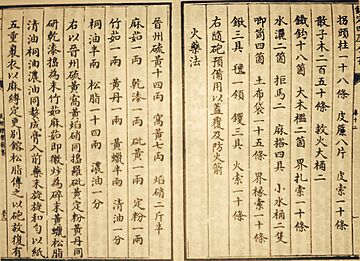 拐頭柱一十八條 皮簾八片 皮索一十條
散子木二百五十條 救火大桶二
鐵鈎十八箇 大木檻二箇 界扎索一十條
水濃二箇 拒馬二 麻搭四具 小水桶二隻
唧筒四箇 土布袋一十五條 界椽索一十條
鍬三具 氊一領 钁三具 火索一十條
右隨砲預備用以蓋覆及防火箭
火藥法
晉州硫黄十四兩 窩黄七兩 焰硝二斤半
麻茹一兩 乾漆一兩 砒黄一兩 定粉一兩
竹茹一兩 黄丹一兩 黄蠟半兩 清油一分
桐油半兩 松脂一十四兩 濃油一分
右以晉州硫黄窩黄焰硝同擣羅砒黄定粉黄丹同
研乾漆擣為末竹茹麻茹即微炒為碎末黄蠟松脂
清油桐油濃油同熬成膏入前藥末旋旋和勻以紙
五重裹衣以麻縛定更別鎔松脂傅之以砲放復有